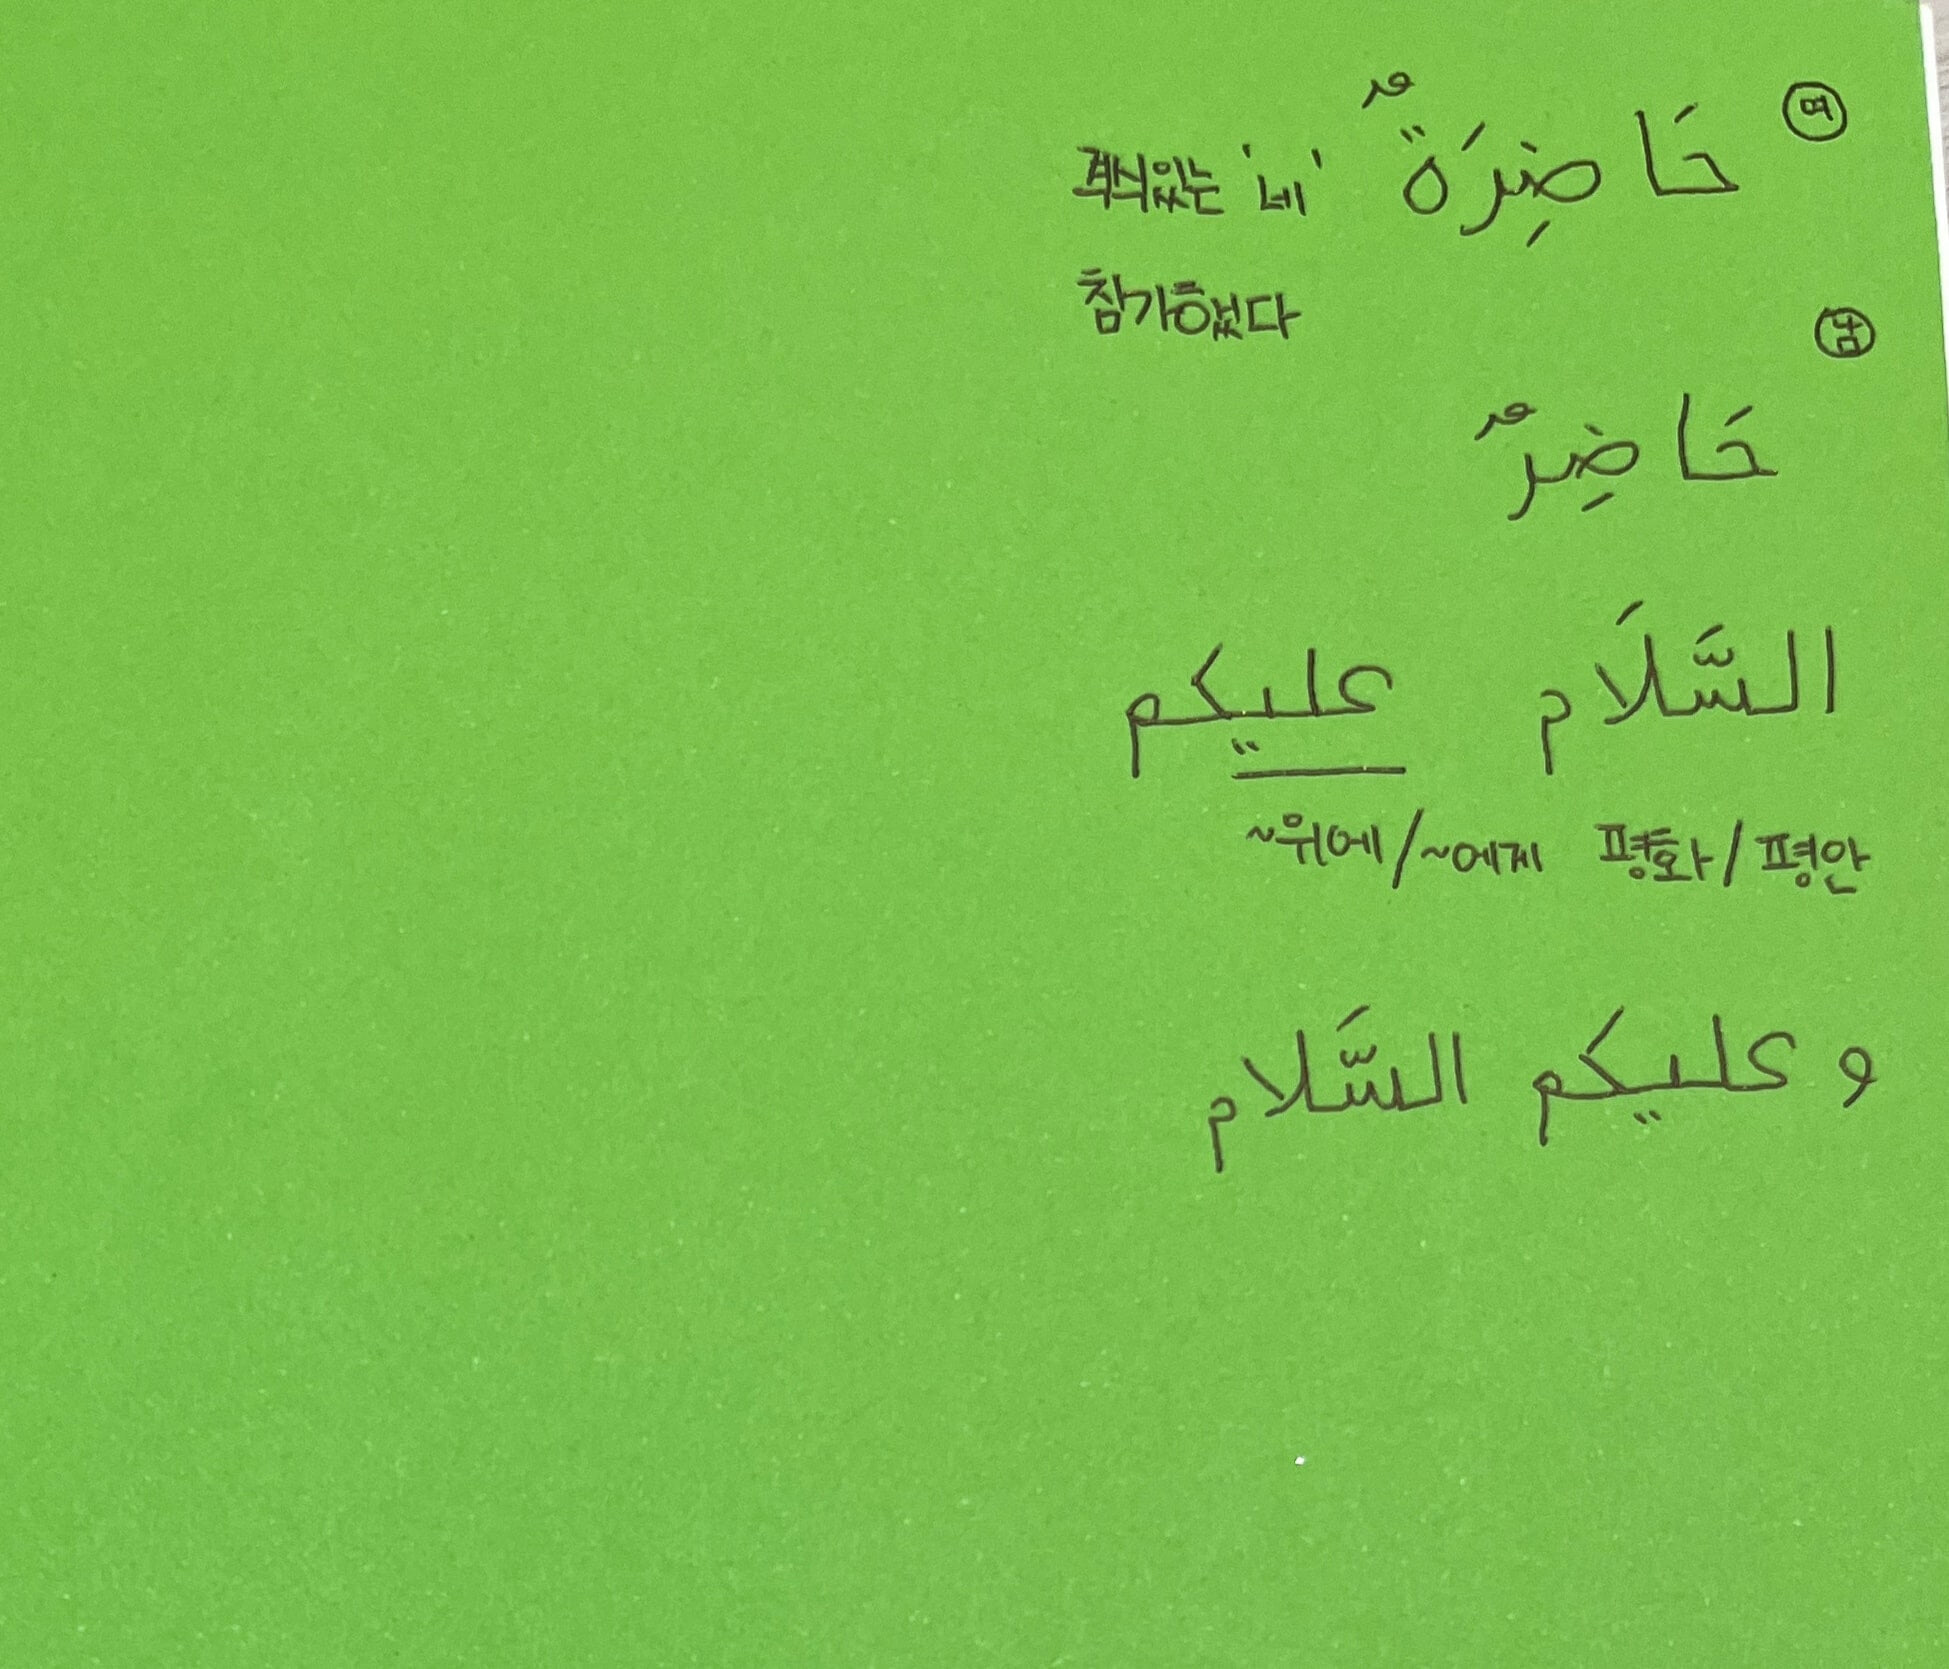 여
حَاضِرَةٌ '네' 격식있는
참가했다
남
حَاضِرٌ
السَّلَام عليكم
~위에/~에게 평화/평안
و عليكم السَّلام